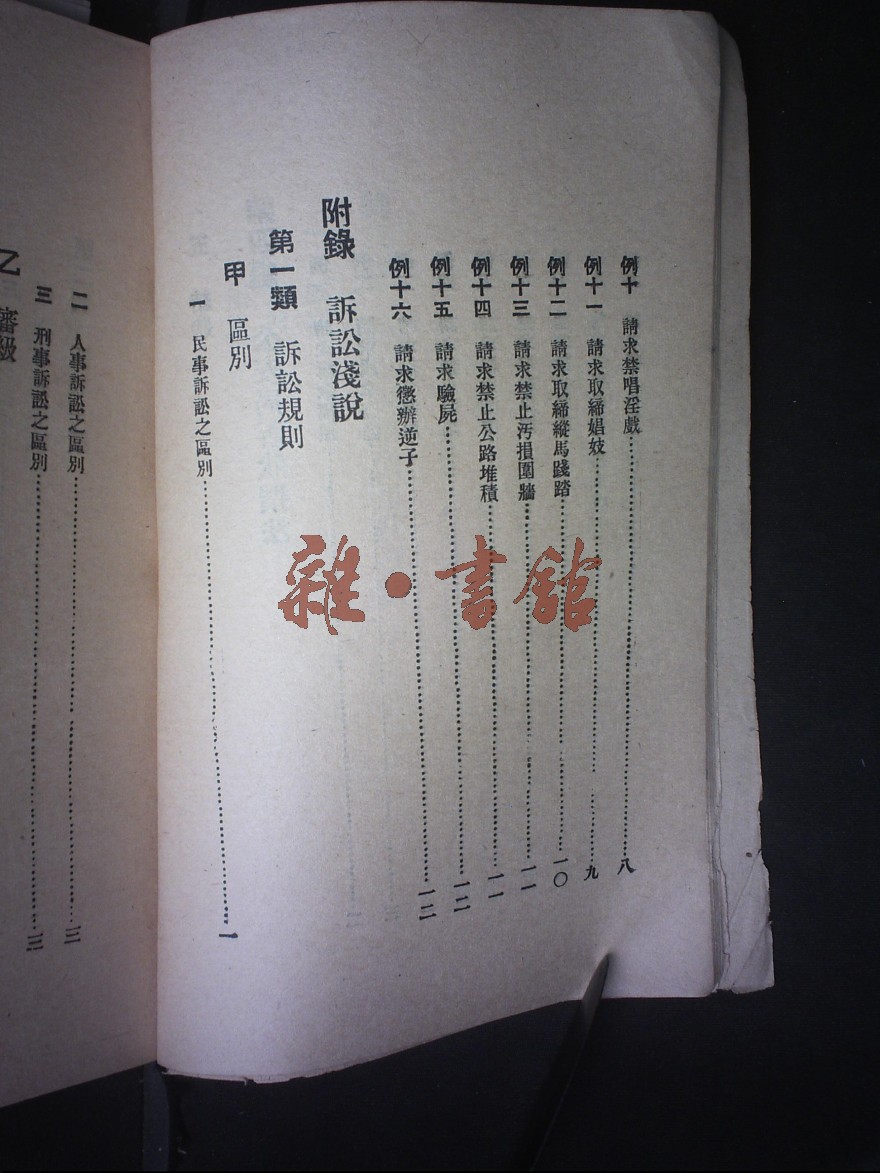 例十 請求禁唱淫戲 八
例十一 請求取締娼妓 九
例十二 請求取締縱馬踐踏 一〇
例十三 請求禁止汚損圍牆 一一
例十四 請求禁止公路堆積 一一
例十五 請求驗屍 一二
例十六 請求懲辦逆子 一二
附錄 訴訟淺說
第一類 訴訟規則
甲 區別
一 民事訴訟之區別 一
二 人事訴訟之區別 三
三 刑事訴訟之區別 三
乙 審級
雜·書館